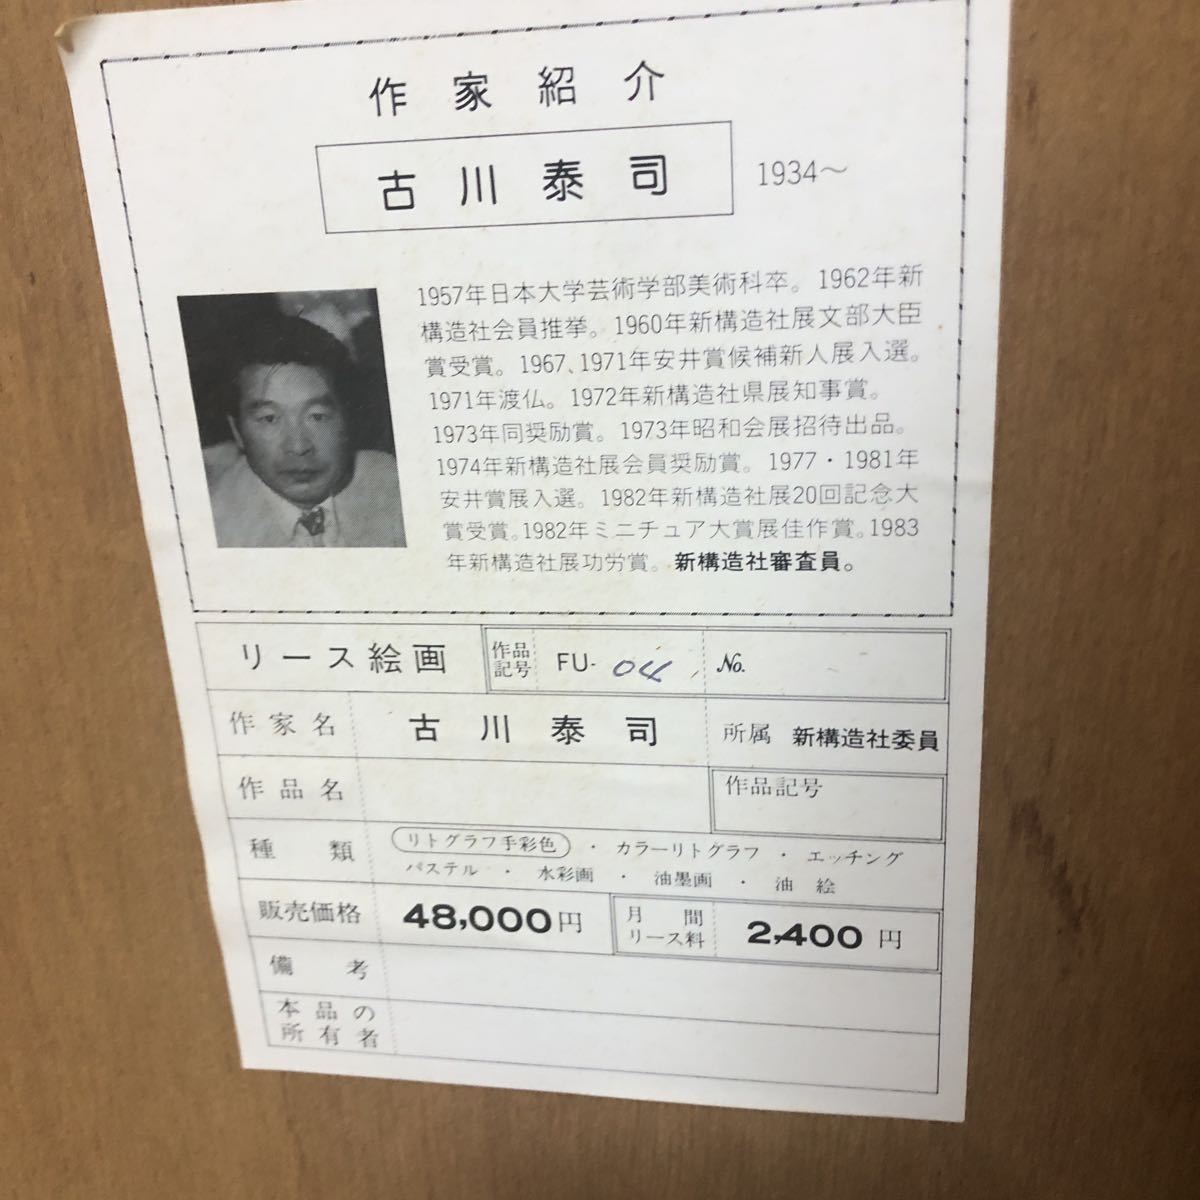 作家紹介
古川泰司 1934〜
1957年日本大学芸術学部美術科卒。1962年新
構造社会員推挙。1960年新構造社展文部大臣
賞受賞。1967、1971年安井賞候補新人展入選。
1971年渡仏。1972年新構造社県展知事賞。
1973年同奨励賞。1973年昭和会展招待出品。
1974年新構造社展会員奨励賞。1977・1981年
安井賞展入選。1982年新構造社展20回記念大
賞受賞。1982年ミニチュア大賞展佳作賞。1983
年新構造社展功労賞。新構造社審査員。
リース絵画 作品記号 FU- 04 No.
作家名 古川泰司 所属 新構造社委員
作品名 作品記号
種類 リトグラフ手彩色・カラーリトグラフ・エッチング
パステル・水彩画・油墨画・油絵
販売価格 48,000円 月間リース料 2,400円
備考
本品の
所有者